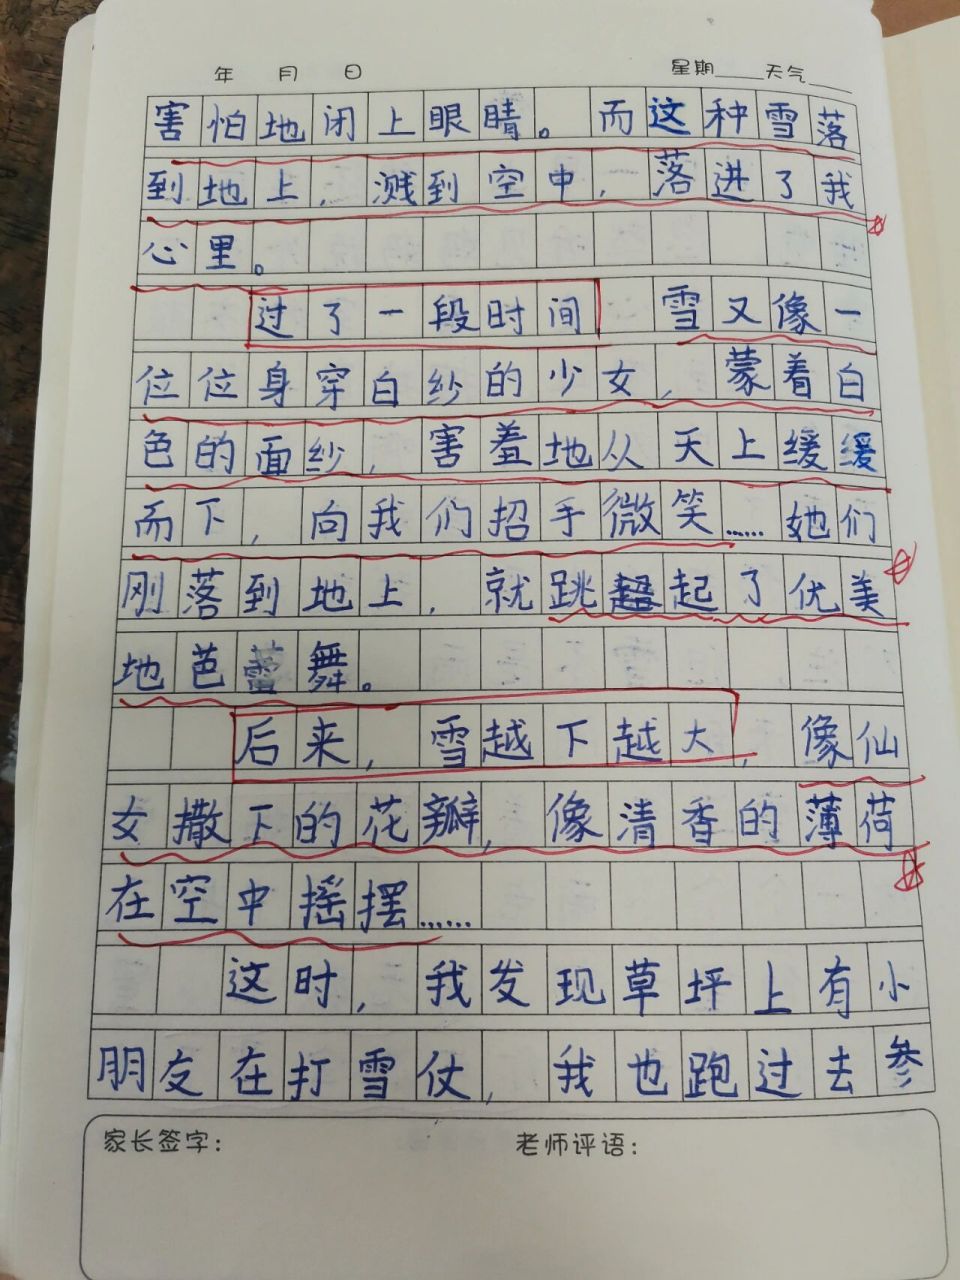 年 月 日 星期____天气____
害怕地闭上眼睛。而这种雪落
到地上，溅到空中，落进了我
心里。
过了一段时间 雪又像一
位位身穿白纱的少女，蒙着白
色的面纱，害羞地从天上缓缓
而下，向我们招手微笑……她们
刚落到地上，就跳起了优美
地芭蕾舞。
后来，雪越下越大，像仙
女撒下的花瓣，像清香的薄荷
在空中摇摆……
这时，我发现草坪上有小
朋友在打雪仗，我也跑过去参
家长签字： 老师评语：